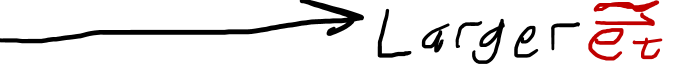 Larger et